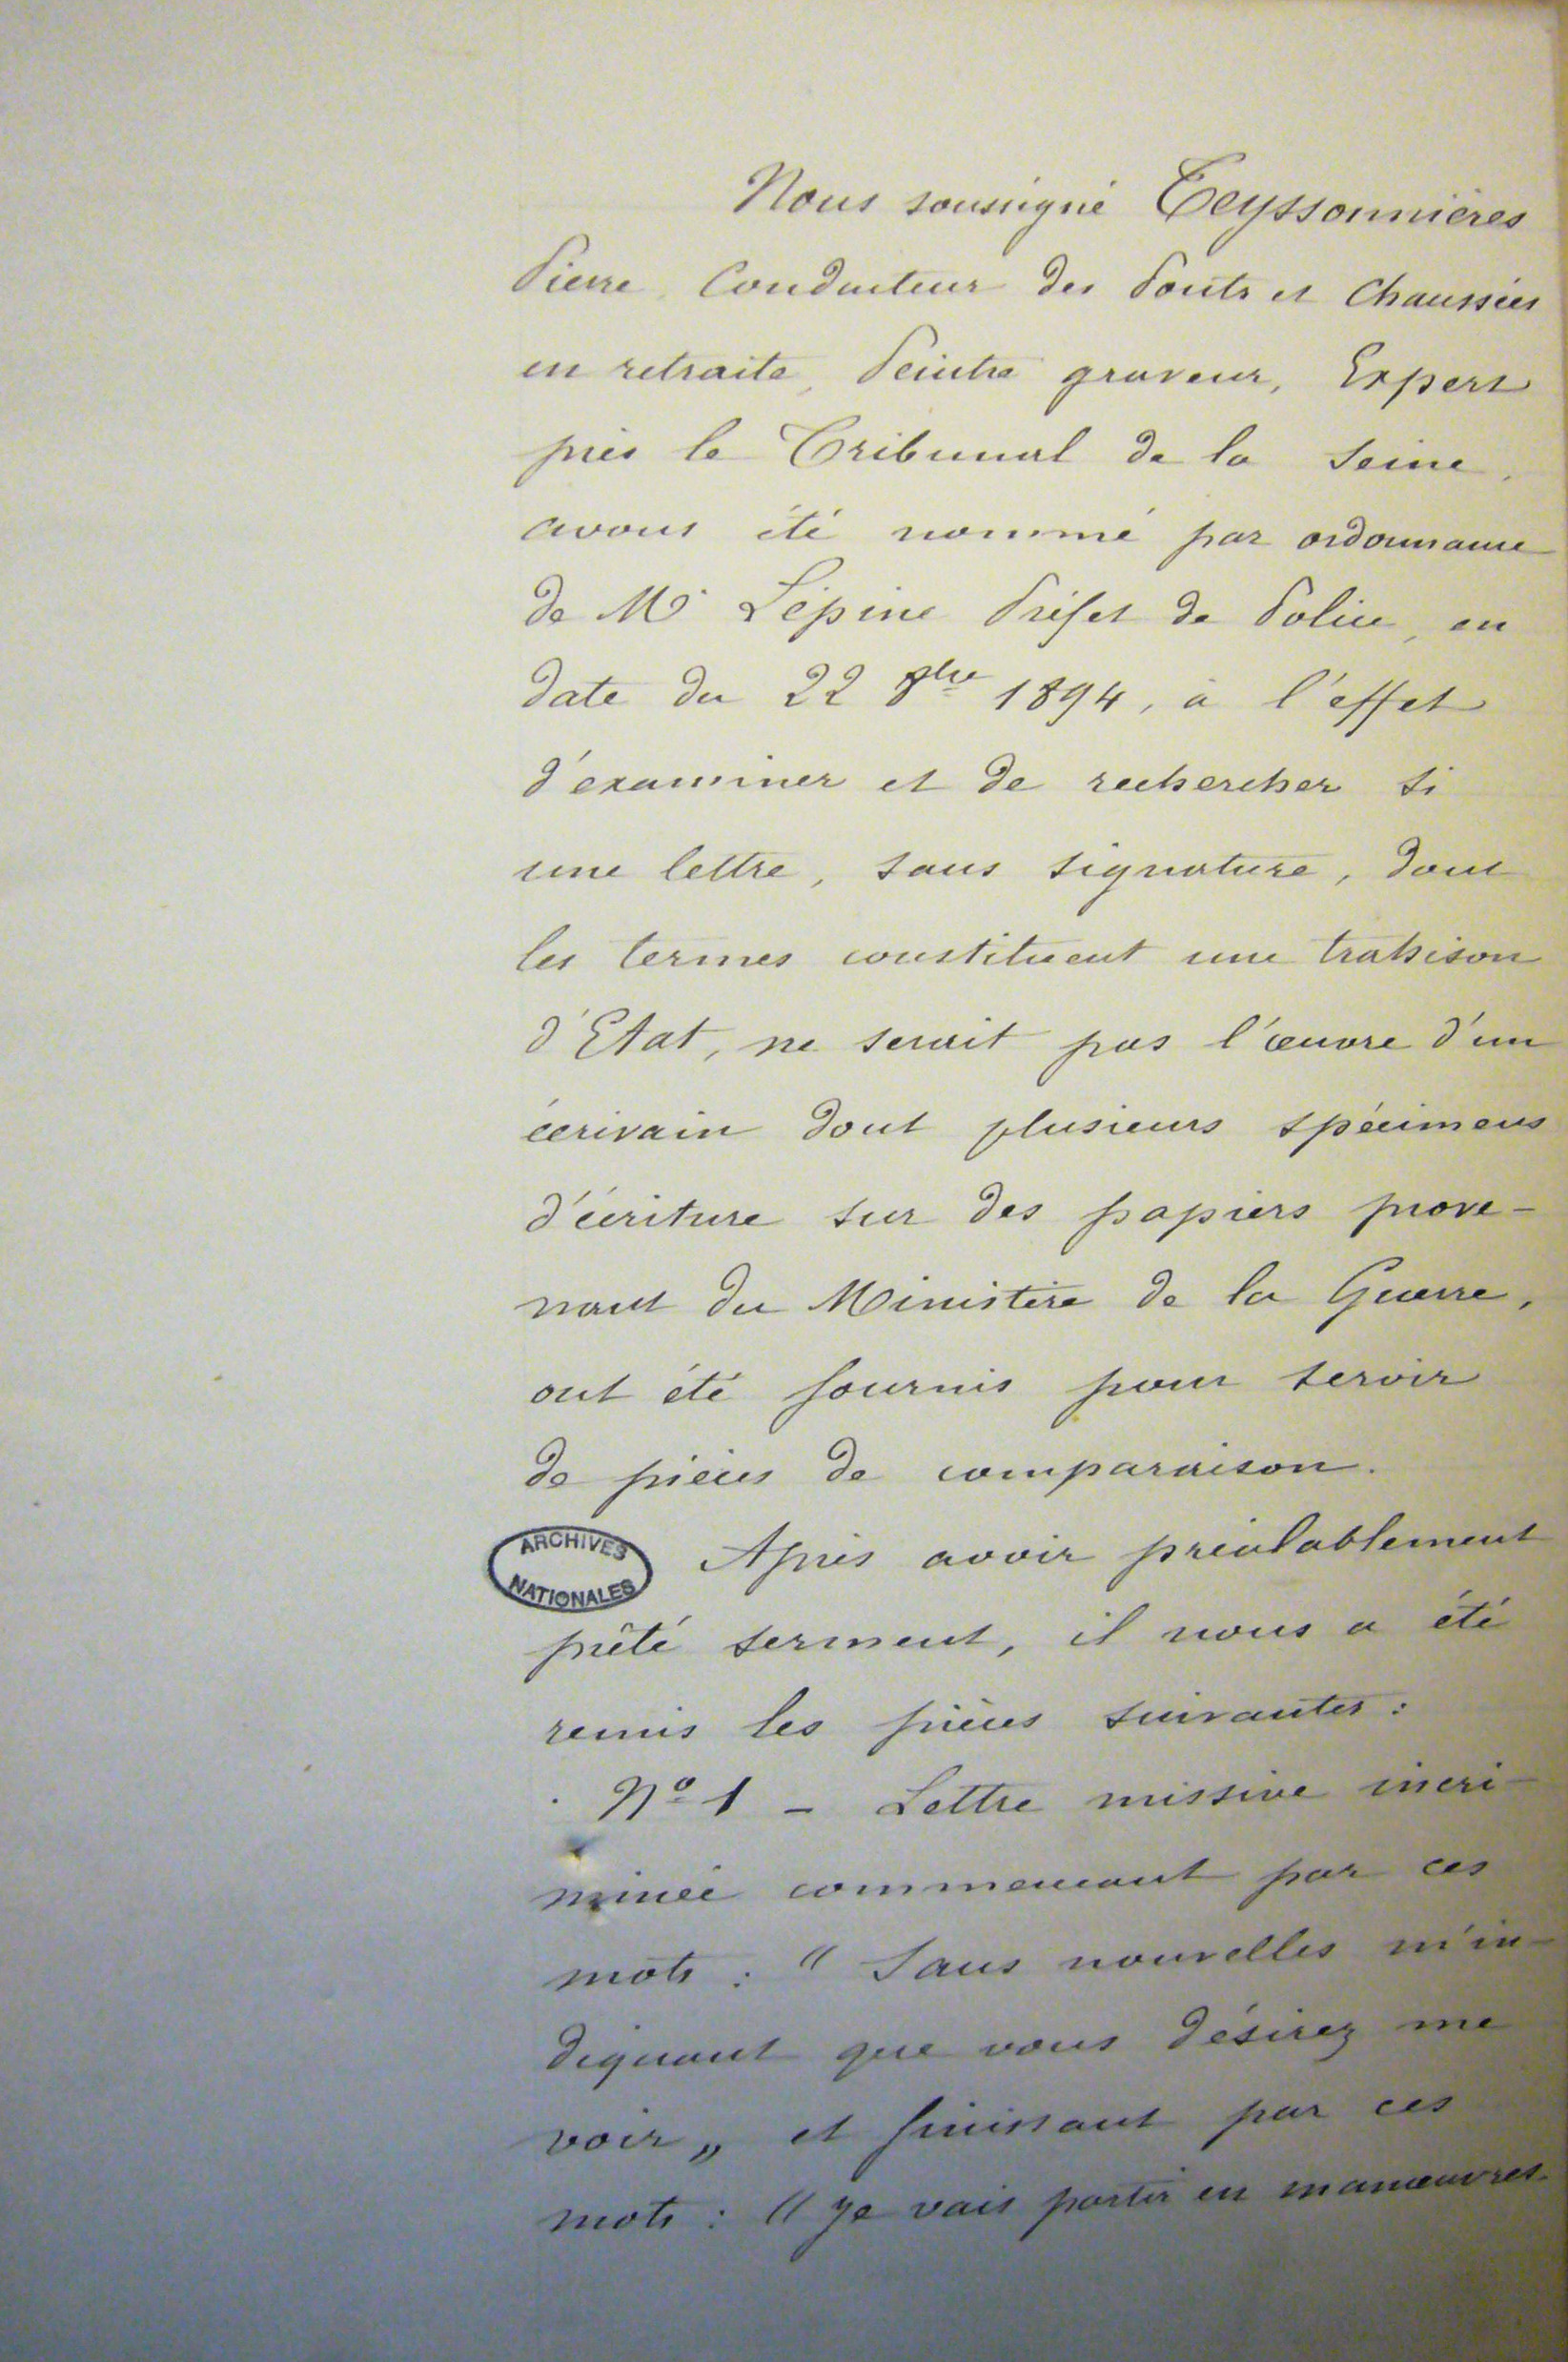 Nous soussigné Teyssonnières
Pierre, Conducteur des Ponts et Chaussées
en retraite, Peintre graveur, Expert
près le Tribunal de la Seine,
avons été nommé par ordonnance
de Mr Lépine Préfet de Police, en
date du 22 8bre 1894, à l'effet
d'examiner et de rechercher si
une lettre, sans signature, dont
les termes constituent une trahison
d'Etat, ne serait pas l'œuvre d'un
écrivain dont plusieurs spécimens
d'écriture sur des papiers prove-
nant du Ministère de la Guerre,
ont été fournis pour servir
de pièces de comparaison.
ARCHIVES NATIONALES
Après avoir préalablement
prêté serment, il nous a été
remis les pièces suivantes :
No 1 – Lettre missive incri-
minée commencant par ces
mots : " Sans nouvelles m'in-
diquant que vous désirez me
voir „ et finissant par ces
mots : " Je vais partir en manœuvres.